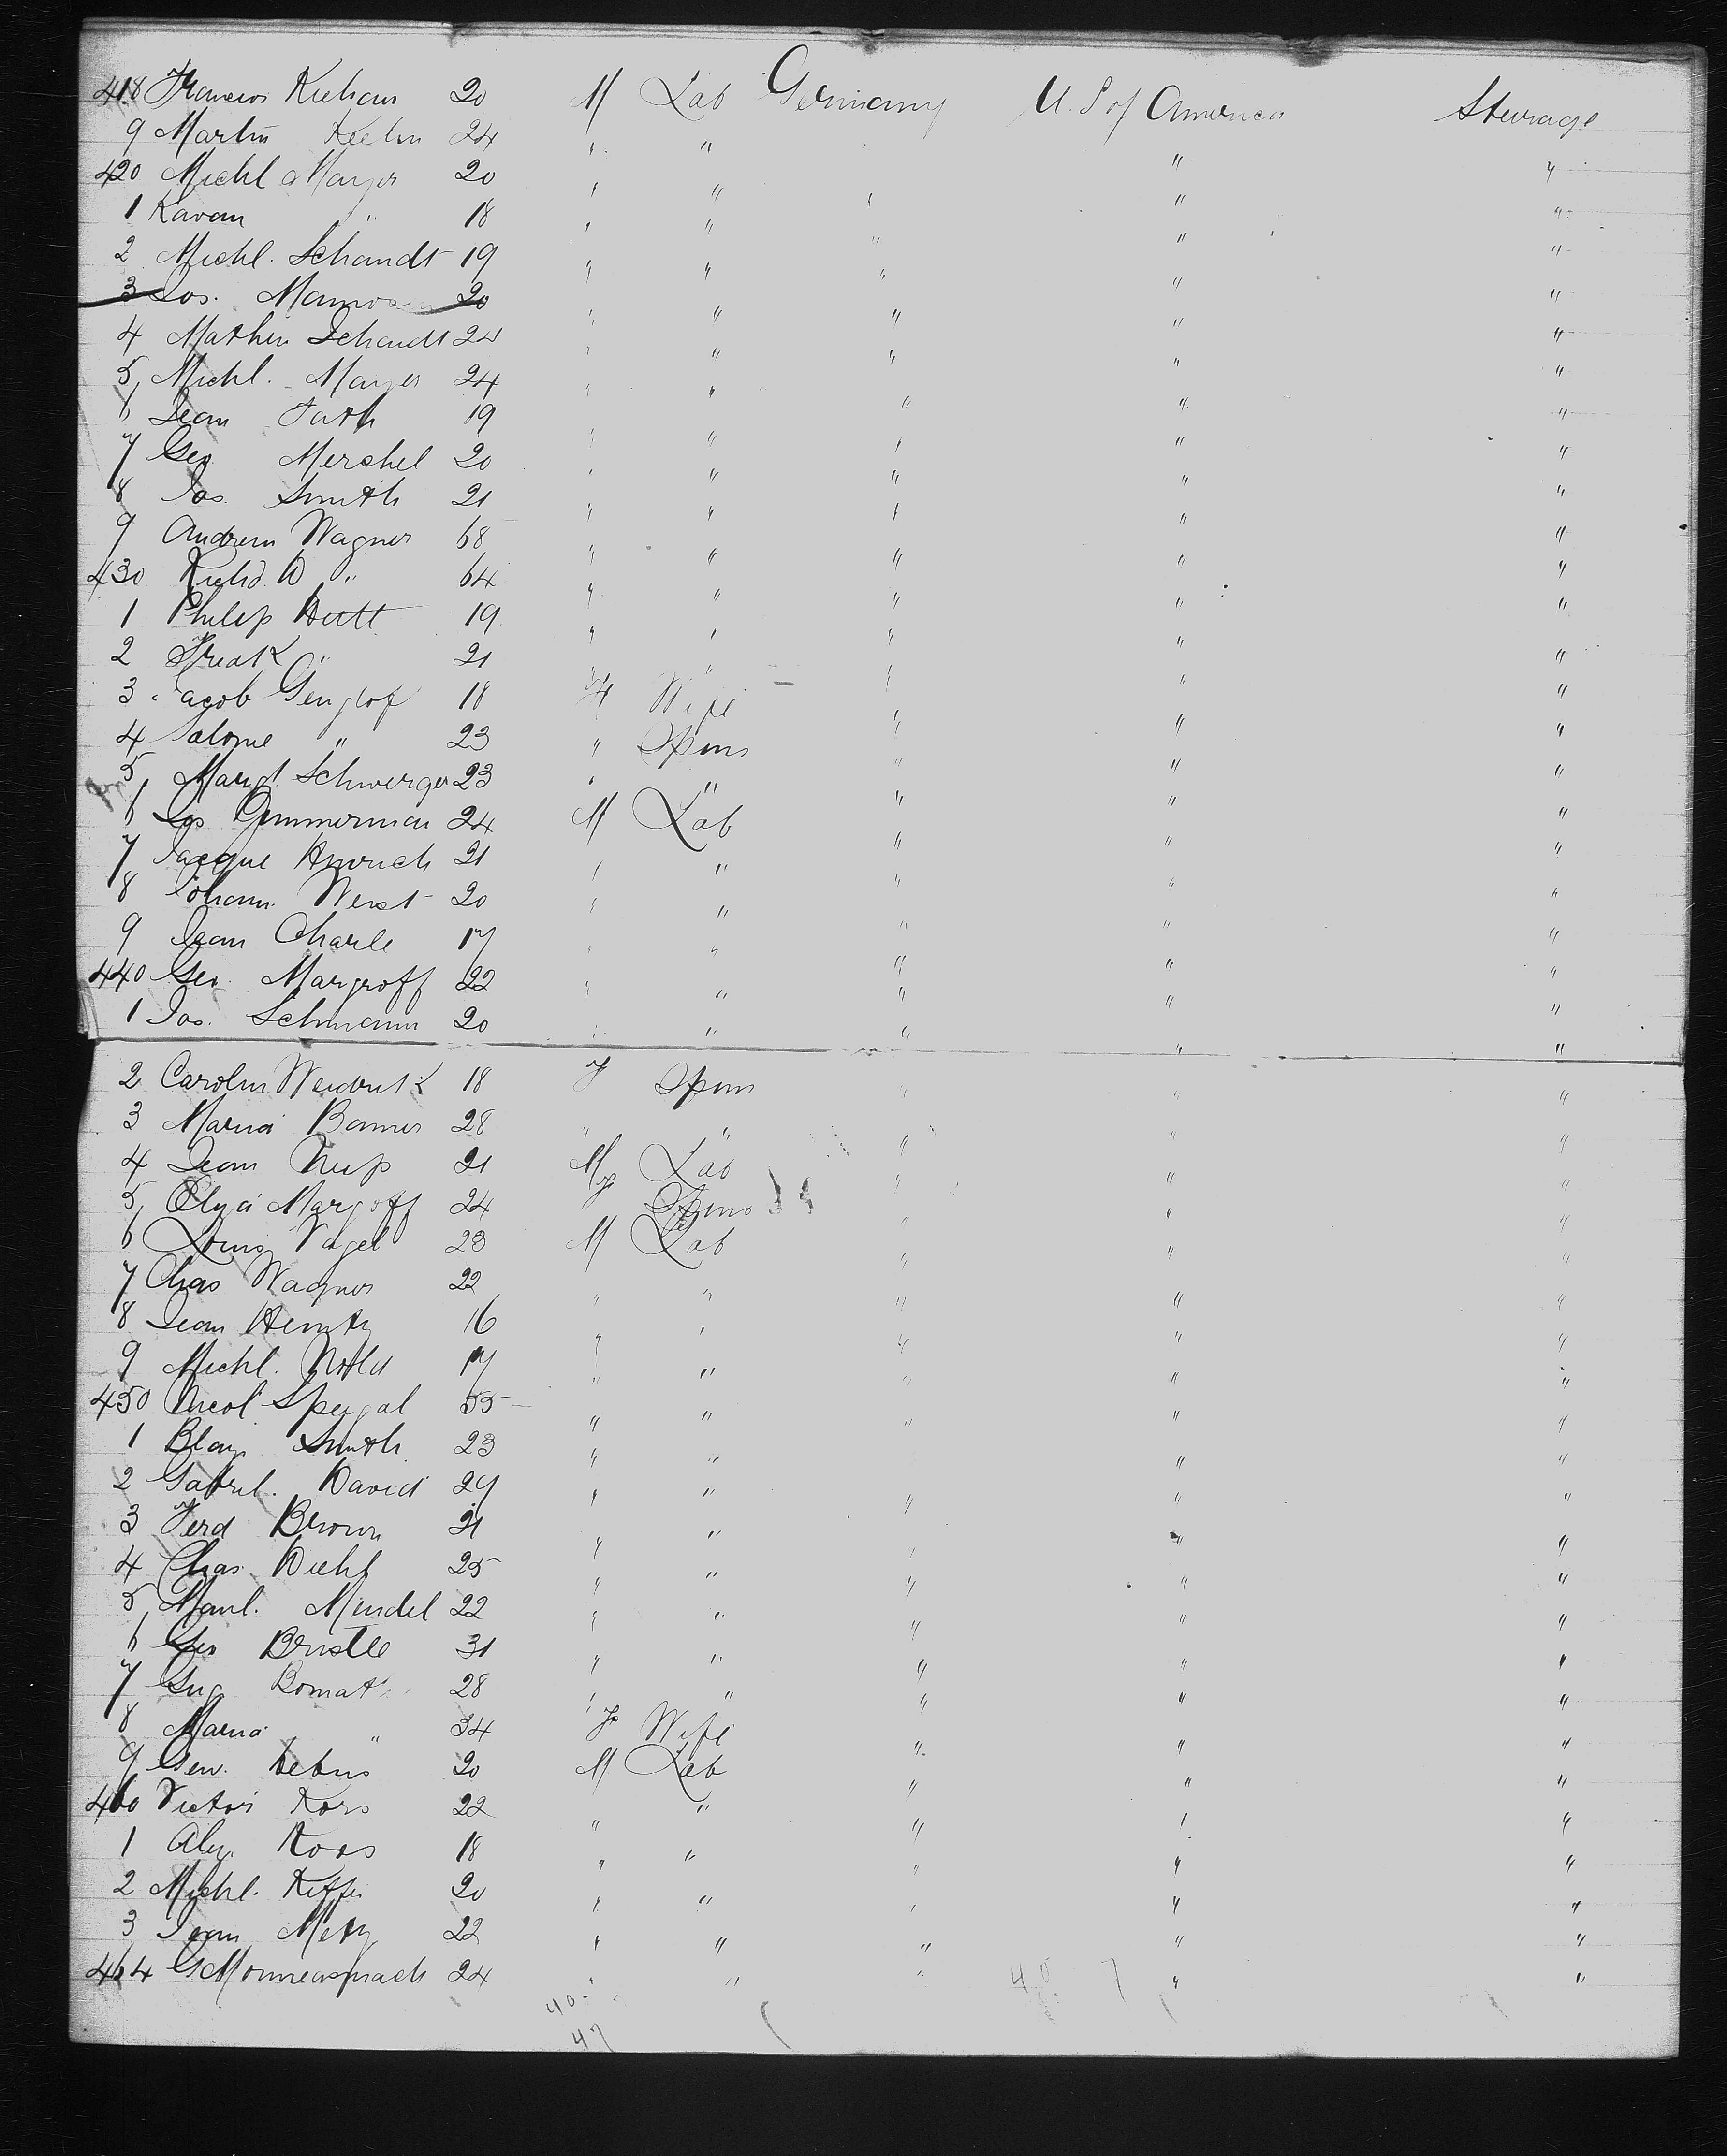 418 Francois Kiehan 20 M Lab Germany U. S of America Steerage
9 Martin Keehn 24 " " " " "
420 Michl Mayer 20 " " " " "
1 Xavan " 18 " " " " "
2 Michl. Schandt 19 " " " " "
3 Jos. 20 " " " " "
4 Mathew Schandt 24 " " " " "
5 Michl. Mayer 24 " " " " "
6 Jean Fath 19 " " " " "
7 Geo Merchel 20 " " " " "
8 Jos. Smith 21 " " " " "
9 Andrew Wagner 68 " " " " "
430 Richd. W " 64 " " " " "
1 Philip Hutt 19 " " " " "
2 " 21 " " " " "
3 Jacob Genglof 18 Wife " " "
4 Salome " 23 " Spins " " "
5 Margt Schwerger 23 " " " " "
6 Jos Zimmerman 24 M Lab " " "
7 Jacque Heinrich 21 " " " " "
8 Johann Weist 20 " " " " "
9 Jean Charle 17 " " " " "
440 Geo. Margroff 22 " " " " "
1 Jos. Schmann 20 " " " " "
2 Carolin 18 F Spins " " "
3 Maria Bonner 28 " " " " "
4 Jean 21 M Lab " " "
5 Margoff 24 F Spins " " "
6 Louis Vogel 23 M Lab " " "
7 Chas Wagner 22 " " " " "
8 Jean Hentz 16 " " " " "
9 Michl. Nold 17 " " " " "
450 Nicol Speygal 55 " " " " "
1 Smith 23 " " " " "
2 Gabril. David 29 " " " " "
3 Ferd Brown 21 " " " " "
4 Chas. Diehl 25 " " " " "
5 Manl. Mindel 22 " " " " "
6 Geo Bristle 31 " " " " "
7 Bomat 28 " " " " "
8 Maria " 34 F Wife " " "
9 Geo. Debus 20 M Lab " " "
460 Victor Kors 22 " " " " "
1 Alex. Koos 18 " " " " "
2 Michl. Kiffer 20 " " " " "
3 Jean Metz 22 " " " " "
464 24 " " " " "
40
47